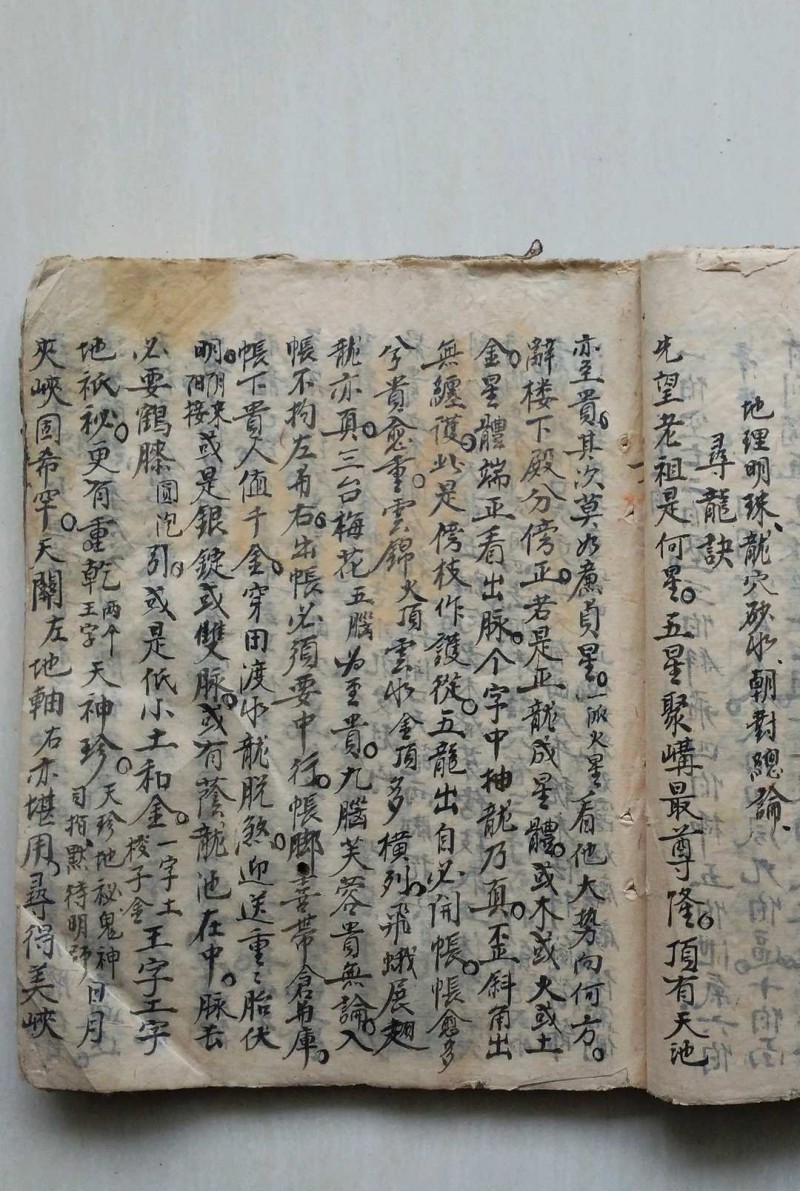 地理明珠、龍穴砂水、朝對總論、
尋龍訣
先望老祖是何星。五星聚講最尊隆。頂有天池
亦至貴。其次莫如廉貞星。一派火星看他大势向何方。
辭楼下殿分傍正。若是正龍成星體。或木或火或土
金。星體端正看出脉。个字中抽龍乃真。歪斜角出
無纏護。此是傍枝作護從。五龍出自必開帳。帳愈多
兮貴愈重。雲錦火頂雲水金頂多橫列。飛蛾展翅
龍亦真。三台梅花五腦為至貴。九腦芙蓉貴無論。入
帳不拘左而右。出帳必須要中行。帳脚喜帶倉與庫。
帳下貴人值千金。穿田渡水龍脱煞。迎送重重胎伏
明。陰來陽接或是銀錠或雙脉。或有蔭龍池在中。脉去
必要鶴膝圓泡引。或是低小土和金。一字土梭子金王字王字
地祇秘。更有重乾两个王字天神珍。天珍地秘鬼神司指點待明師日月
夾峽固希罕。天關左地軸右亦堪用。尋得美峽